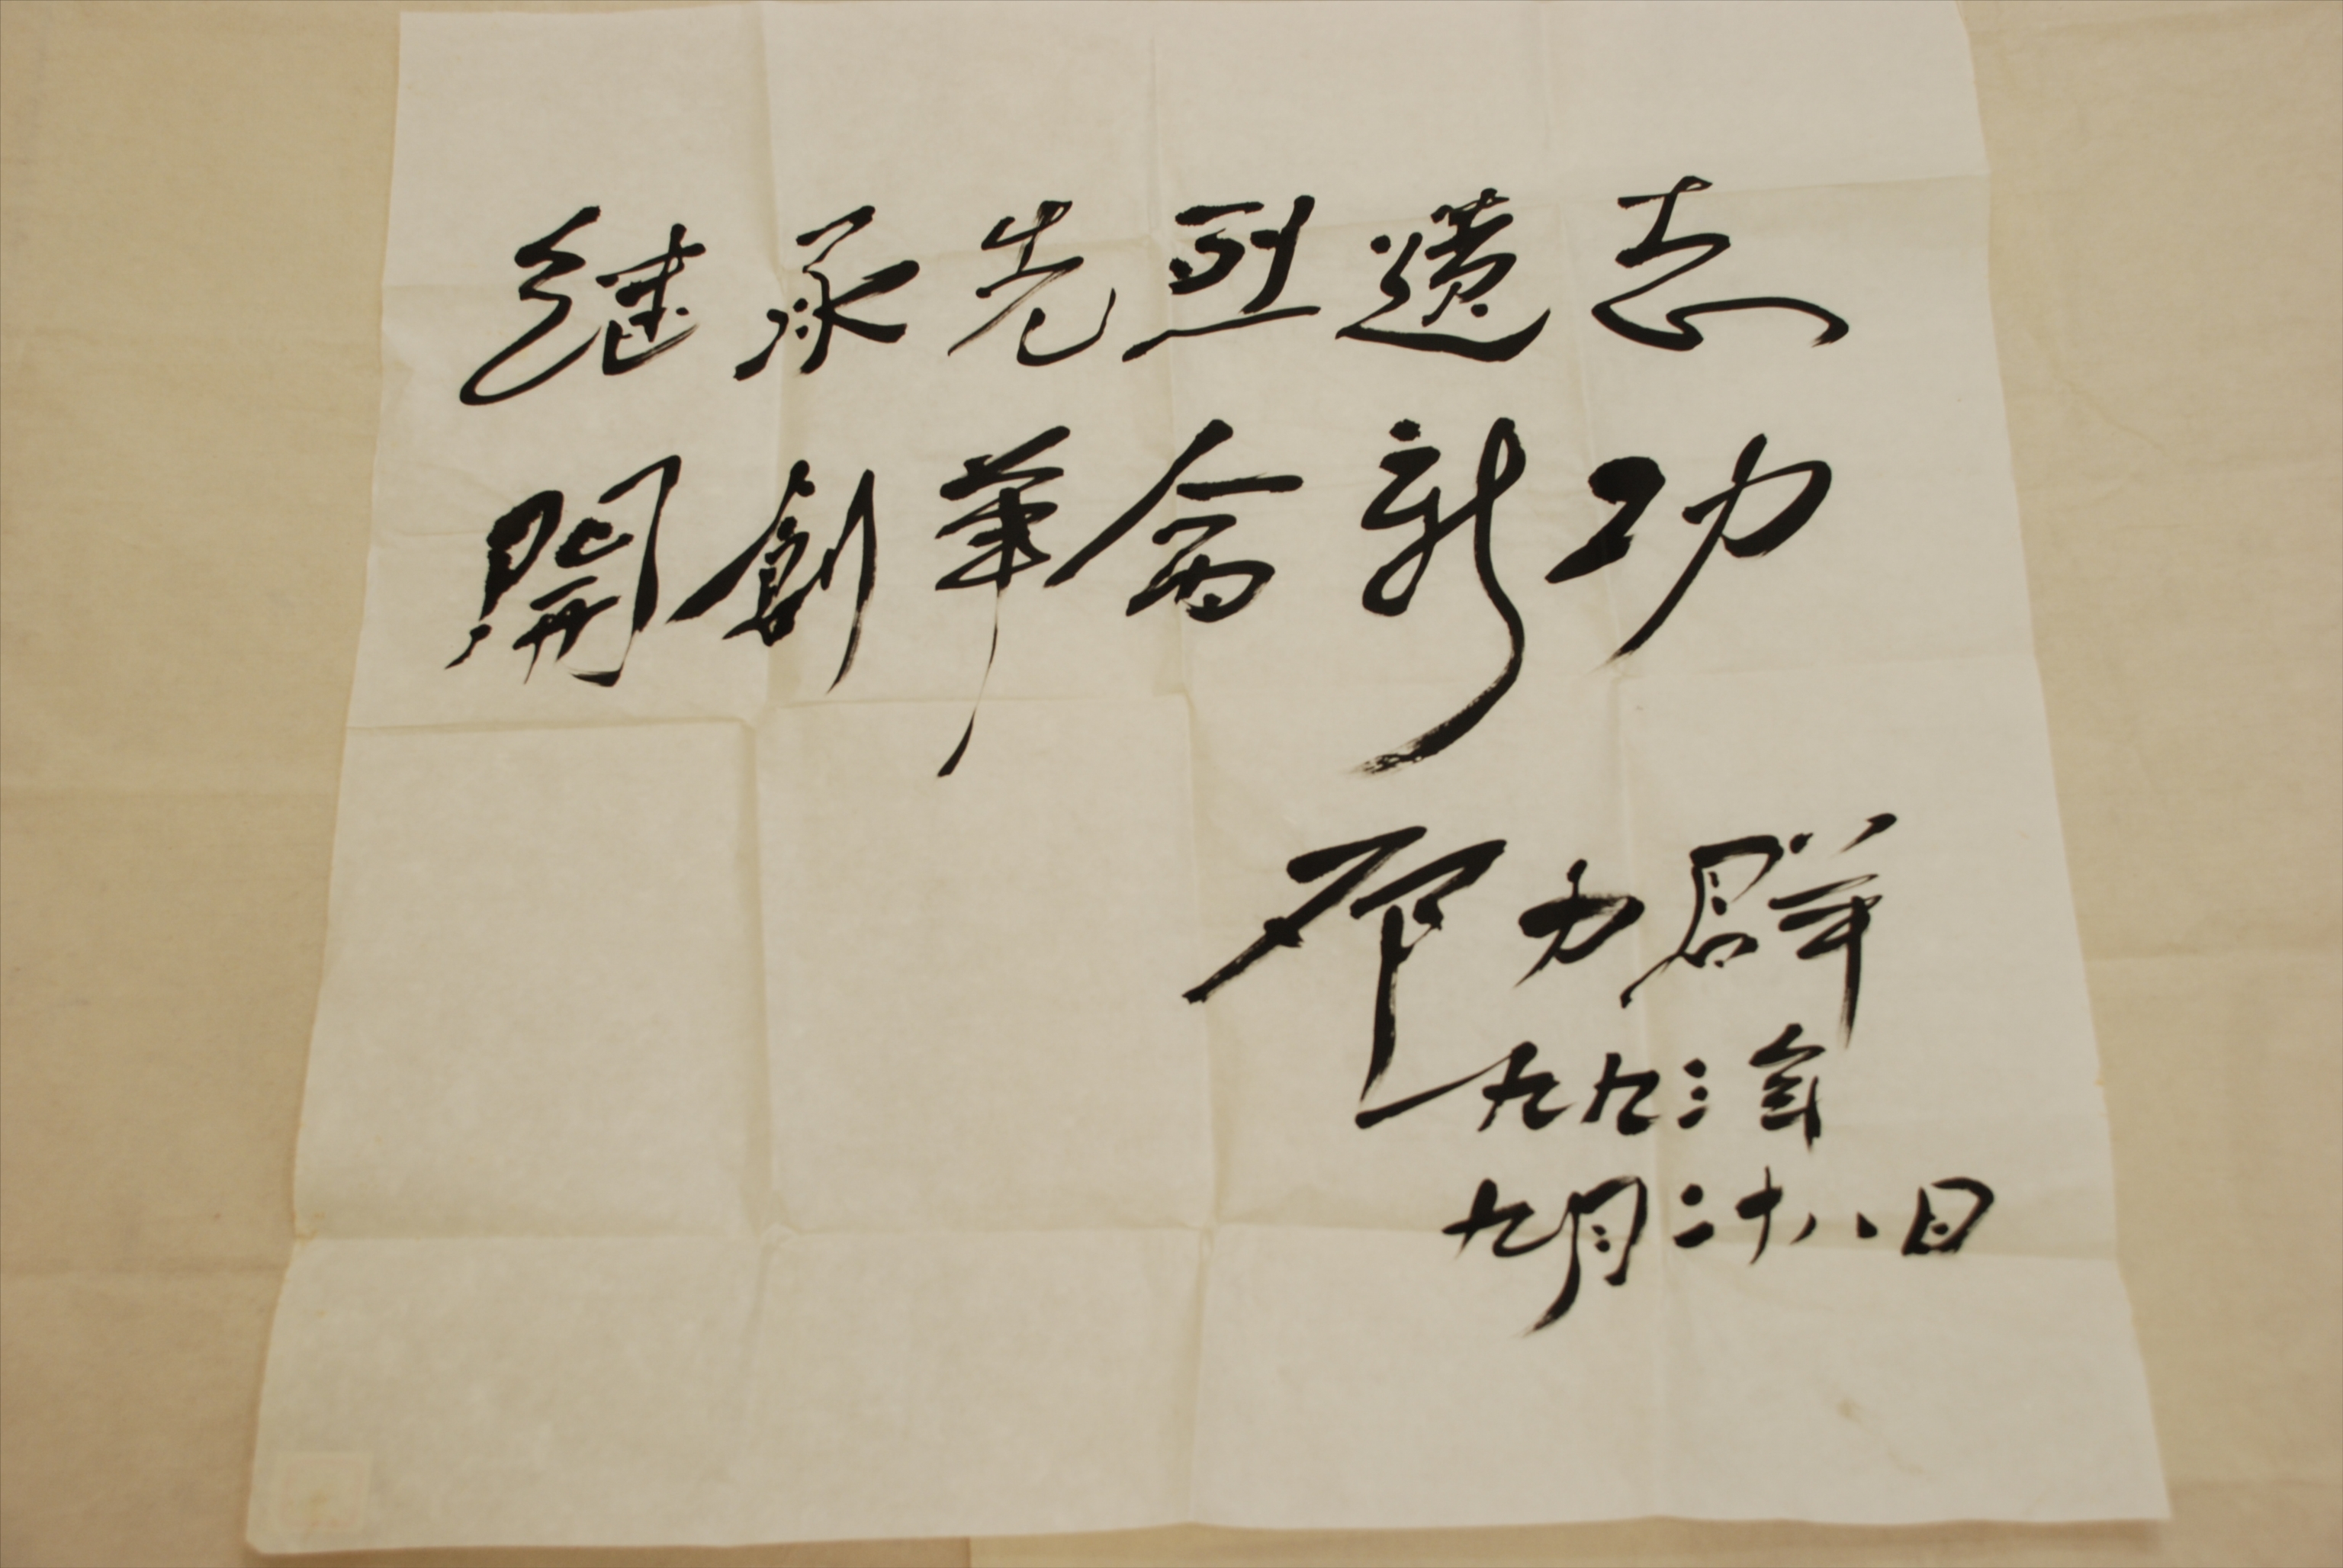 继承先烈遗志
開創革命新功
邓力群
一九九三年
九月二十八日